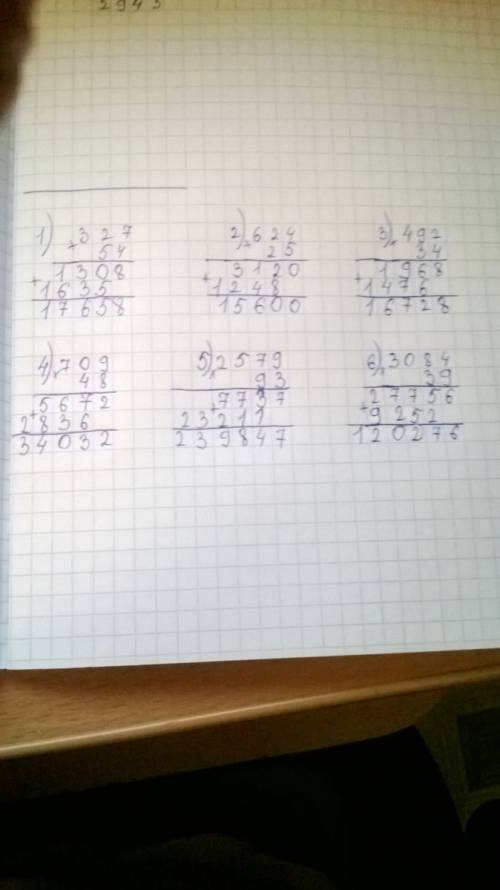 2943
1) × 327
54
+ 1308
1635
17658
2) × 624
25
+ 3120
1248
15600
3) × 492
34
+ 1968
1476
16728
4) × 709
48
+ 5672
2836
34032
5) × 2579
93
+ 7737
23211
239847
6) × 3084
39
+ 27756
9252
120276